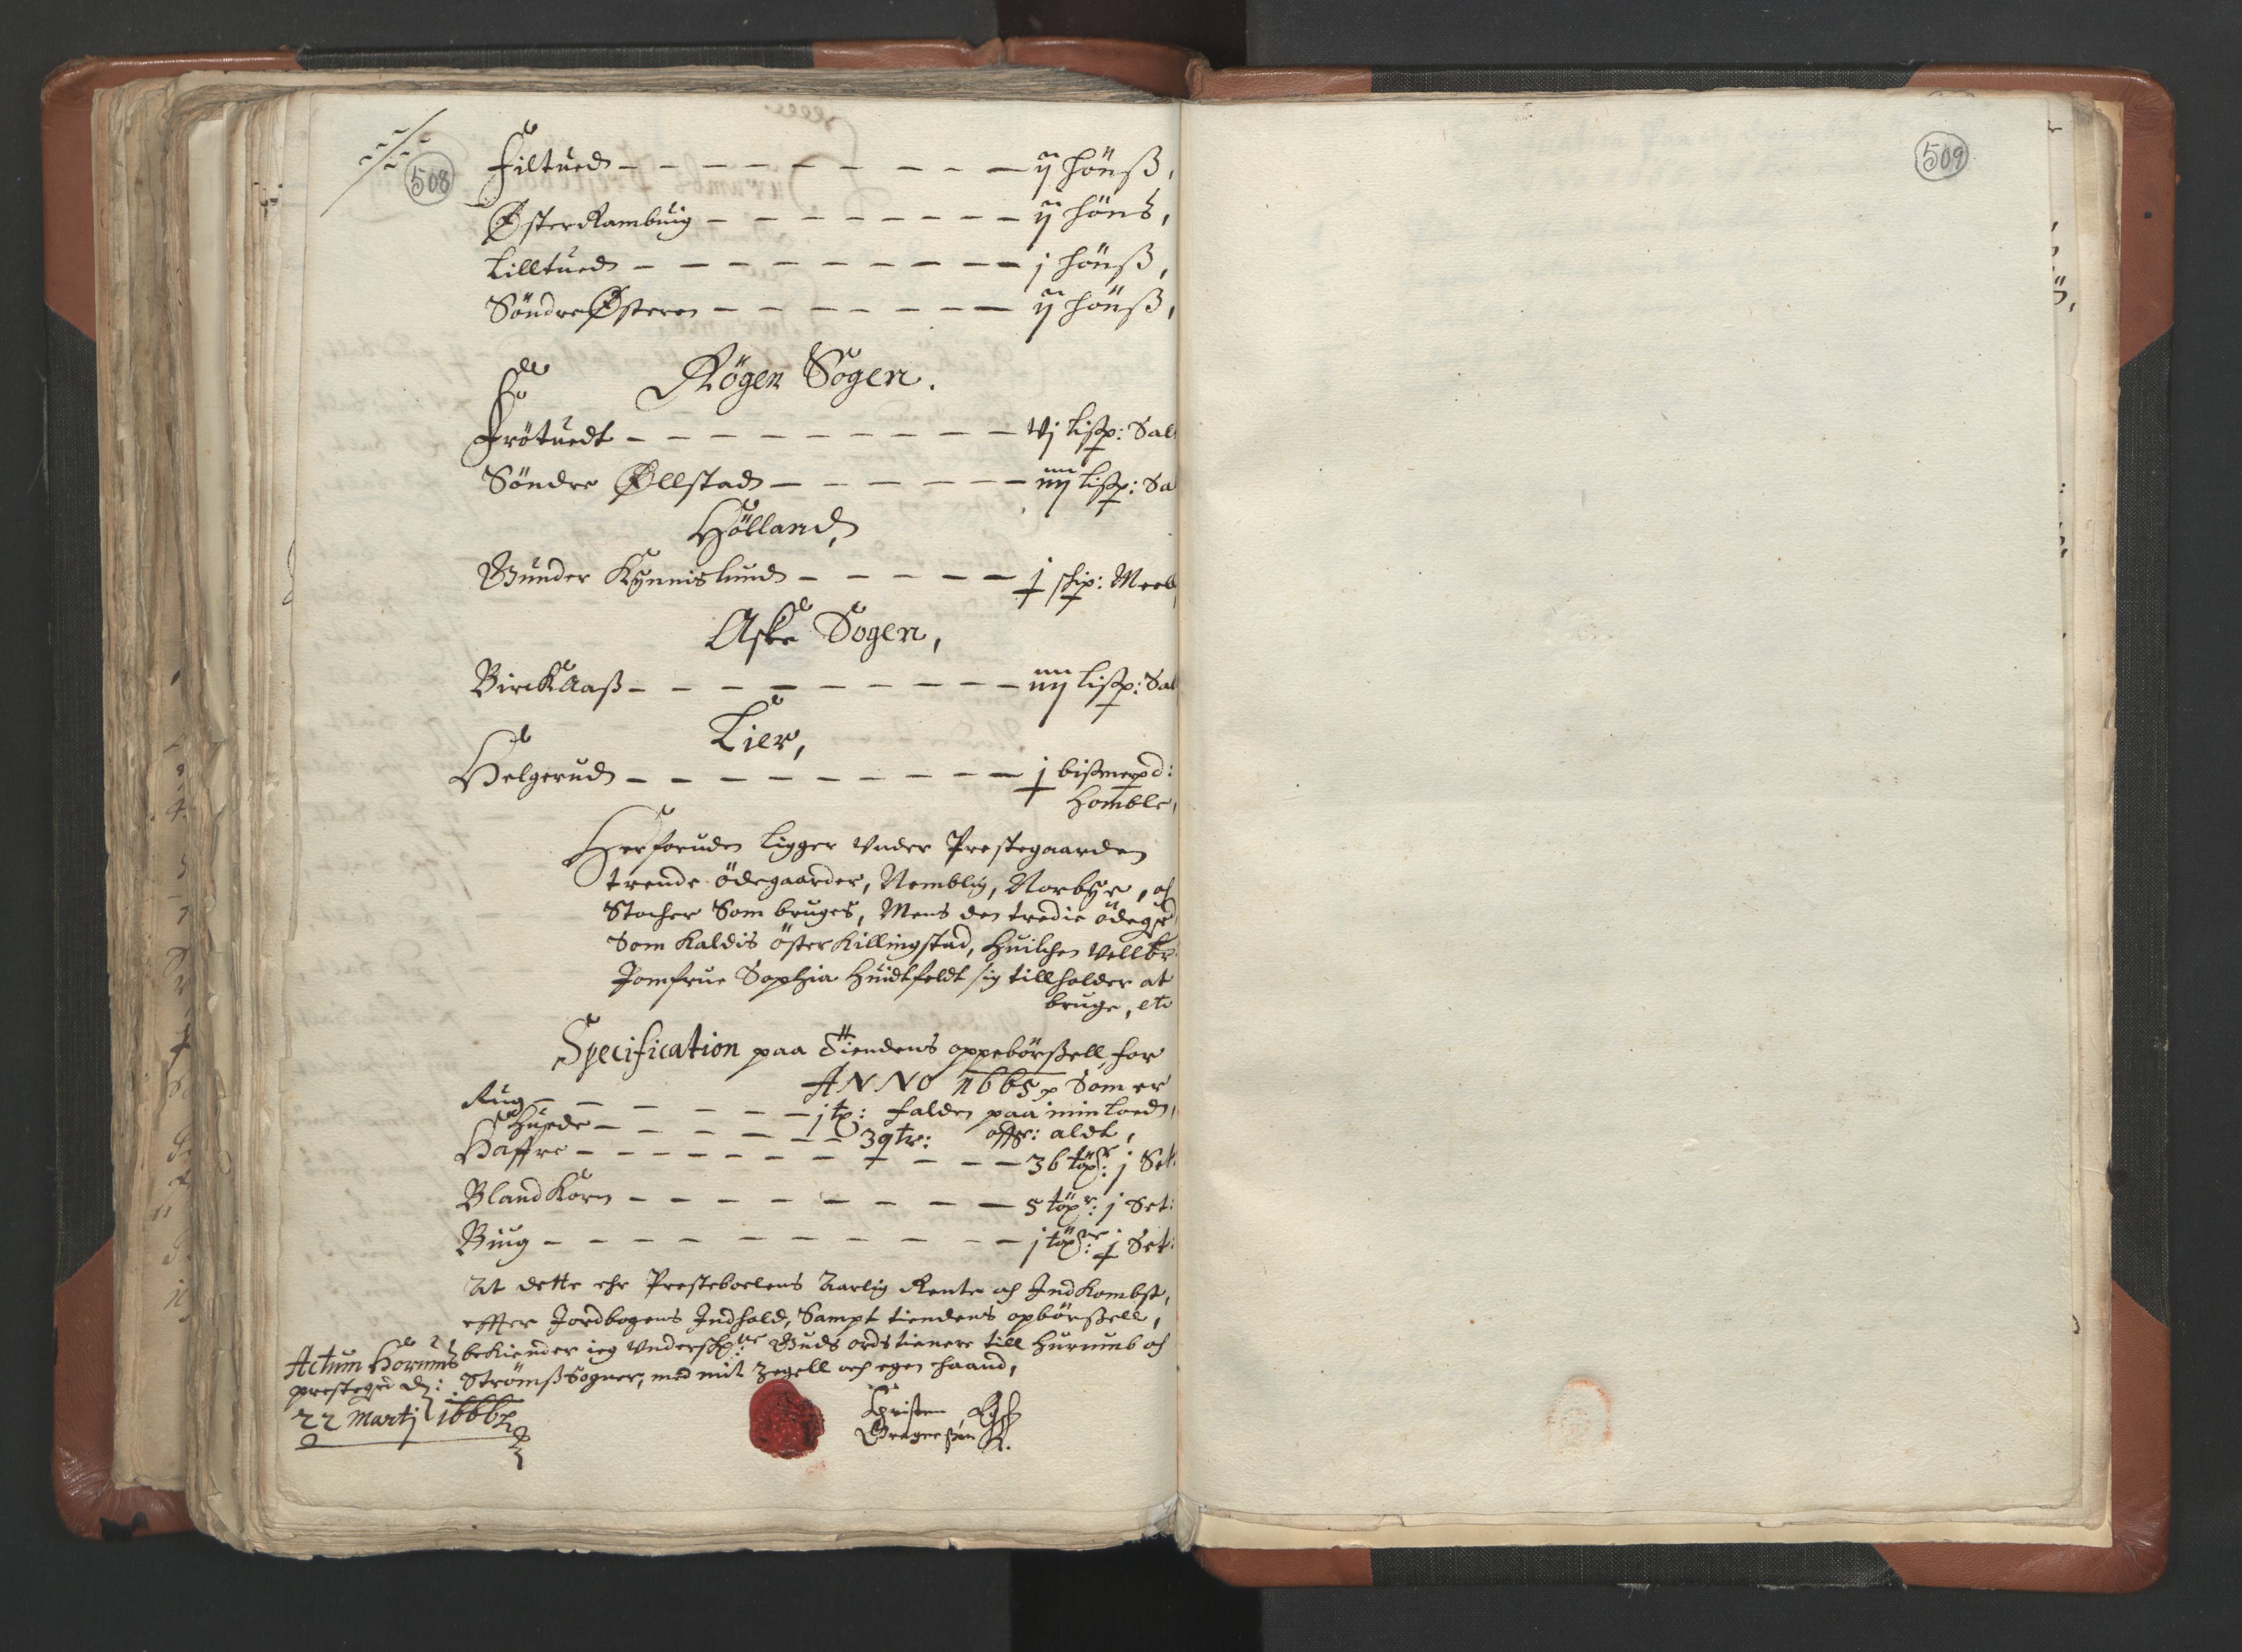 508
Filtued - - - - - - - - - ij hönß,
Øster Rambuig - - - - - - - - ij höns,
Lilltued - - - - - - - - - j hönß,
Söndre Østeren - - - - - - - ij hönß,
Rögen Sogen.
Frötuedt - - - - - - - - - vj Lißp: Sal
Söndre Øllstad - - - - - - - iiij Lißp: Sa
Hölland,
Gunder Kynnislund - - - - - j skip: Meell
Aske Sogen,
Birckaaß - - - - - - - - - iiij Lißp: Sal
Lier,
Helgerud - - - - - - - - - j bißmerpd:
Homble,
Herforuden Ligger Under Prestegaarden
trende ödegaarder, Nemblig, Norbye, och
Stocher Som bruges, Mens den tredie ödegrd
Som Kaldis öster Killingstad, Huilchen Vellbr
Jomfrue Sophia Huidtfeldt sig tillholder at
bruge, etc
Specification paa Tiendens oppebörßell, for
ANNO 1665, Som er
Rug - - - - - - j tp: falden paa min Loed,
Huede - - - - - - 3 qtr: aldt,
Haffre - - - - - - - - - 36 töpr: j Set:
Bland Korn - - - - - - - - - 5 töpr: j Set:
Biug - - - - - - - - - - j töpr: j Set:
At dette ehr Presteboelens Aarlig Rente och Indkombst,
effter Jordbogens Indhold, Sampt tiendens opbörßell,
bekiender ieg Underschr: Guds ords tienere till Hurumb och
Strömß Sogner, med mit Zegell och egen haand,
Actum Horums
prestegrd d:
22 Martj 1666
Christen
Gregersßön
509